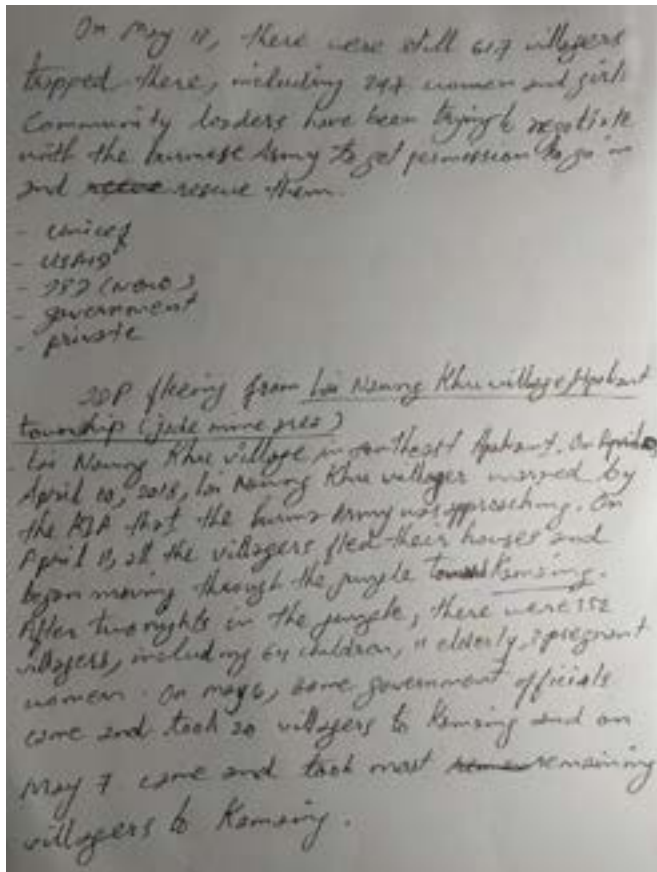 On May 18, there were still 617 villagers
trapped there, including 247 women and girls
Community leaders have been trying to negotiate
with the burmese Army to get permission to go in
and rescue them.
- Unicef
- USAID
- (NGO)
- government
- private
fleeing from Lai Naung Khu village, Hpakant
township (jade mine area)
Lai Naung Khu village in southeast Hpakant. On April
April 10, 2018, Lai Naung Khu villager warned by
the KIA that the burma Army was approaching. On
April 11, all the villagers fled their houses and
began moving through the jungle toward Kamaing.
After two nights in the jungle, there were 152
villagers, including 64 children, 11 elderly, 2 pregnant
women. On May 6, some government officials
came and took 20 villagers to Kamaing and on
May 7 came and took most remaining
villagers to Kamaing.